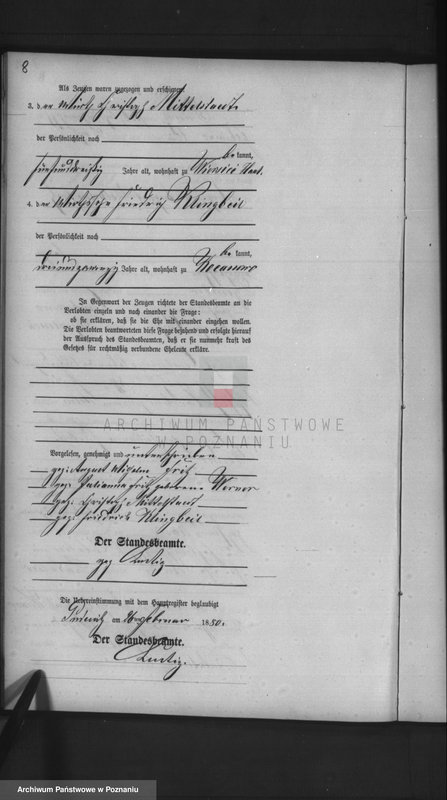 8
Als Zeugen waren zugezogen und erschienen:
3. der Wirth Christoph Mittelstaedt
der Persönlichkeit nach
be kannt,
fünfunddreißig Jahre alt, wohnhaft zu
4. der Wirthssohn Friedrich Klingbeil
der Persönlichkeit nach
be kannt,
dreiundzwanzig Jahre alt, wohnhaft zu
In Gegenwart der Zeugen richtete der Standesbeamte an die
Verlobten einzeln und nach einander die Frage:
ob sie erklären, daß sie die Ehe mit einander eingehen wollen.
Die Verlobten beantworteten diese Frage bejahend und erfolgte hierauf
der Ausspruch des Standesbeamten, daß er sie nunmehr kraft des
Gesetzes für rechtmäßig verbundene Eheleute erkläre.
ARCHIWUM PAŃSTWOWE
W POZNANIU
Vorgelesen, genehmigt und unterschrieben
gez. August Wilhelm Fritz
gez. Julianna Fritz geborene Werner
gez. Christoph Mittelstaedt
gez. Friedrich Klingbeil
Der Standesbeamte.
gez.
Die Uebereinstimmung mit dem Hauptregister beglaubigt
am Februar 1880.
Der Standesbeamte.
Archiwum Państwowe w Poznaniu